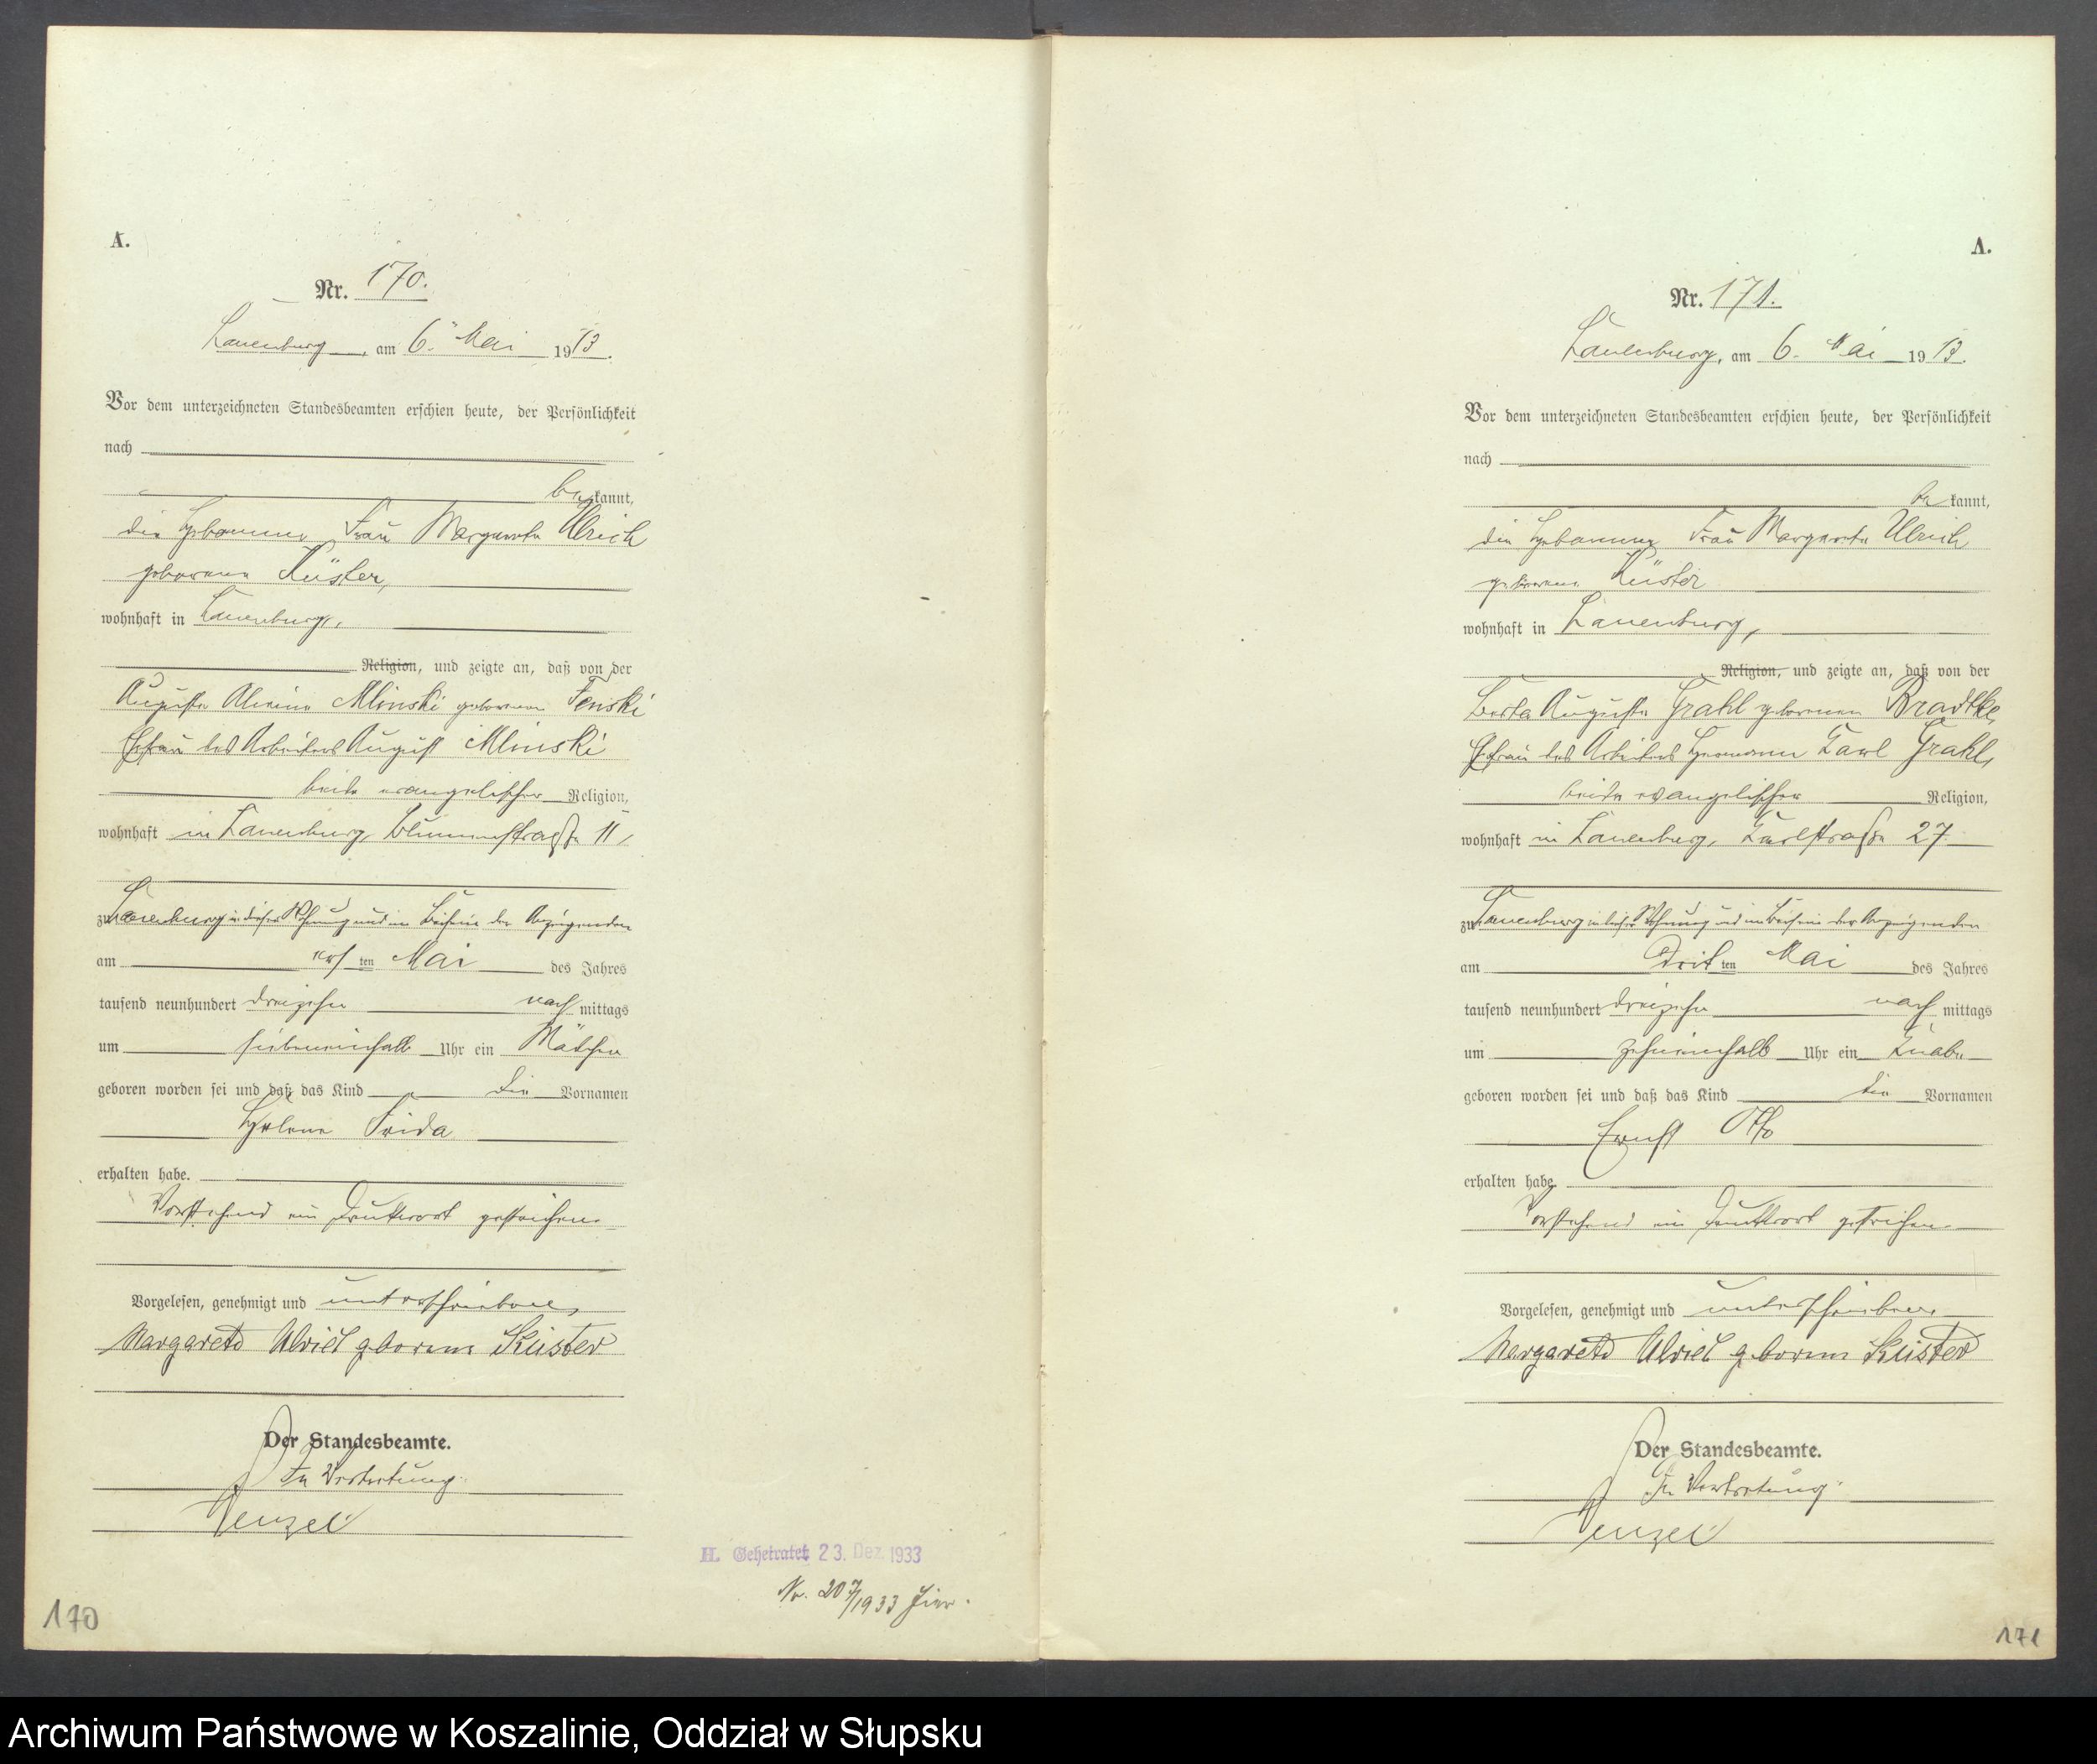 A.
Nr. 170.
Lauenburg, am 6. Mai 1913.
Vor dem unterzeichneten Standesbeamten erschien heute, der Persönlichkeit
nach
be kannt,
die Hebamme Frau Margarete Ulrich
geborene Küster,
wohnhaft in Lauenburg,
Religion, und zeigte an, daß von der
Auguste Alwine Mlinski geborenen Fenski
Ehefrau des Arbeiters August Mlinski
beide evangelischer Religion,
wohnhaft in Lauenburg, Blumenstraße 11,
zu Lauenburg in dieser Wohnung und im Beisein der Anzeigenden
am ersten Mai des Jahres
tausend neunhundert dreizehn nachmittags
um siebeneinhalb Uhr ein Mädchen
geboren worden sei und daß das Kind die Vornamen
Helene Frida
erhalten habe.
Vorstehend ein Druckwort gestrichen.
Vorgelesen, genehmigt und unterschrieben
Margarete Ulrich geborene Küster
Der Standesbeamte.
In Vertretung.
Wenzel
H. Geheiratet 23. Dez. 1933
Nr. 207/1933 hier.
170
A.
Nr. 171.
Lauenburg, am 6. Mai 1913.
Vor dem unterzeichneten Standesbeamten erschien heute, der Persönlichkeit
nach
be kannt,
die Hebamme Frau Margarete Ulrich
geborene Küster
wohnhaft in Lauenburg,
Religion, und zeigte an, daß von der
Berta Auguste Grahl geborenen Bradtke,
Ehefrau des Arbeiters Hermann Karl Grahl,
beide evangelischer Religion,
wohnhaft in Lauenburg, Karlstraße 27
zu Lauenburg in dieser Wohnung und im Beisein der Anzeigenden
am dritten Mai des Jahres
tausend neunhundert dreizehn nachmittags
um zehneinhalb Uhr ein Knabe
geboren worden sei und daß das Kind die Vornamen
Ernst Otto
erhalten habe.
Vorstehend ein Druckwort gestrichen.
Vorgelesen, genehmigt und unterschrieben
Margarete Ulrich geborene Küster
Der Standesbeamte.
In Vertretung.
Wenzel
171
Archiwum Państwowe w Koszalinie, Oddział w Słupsku